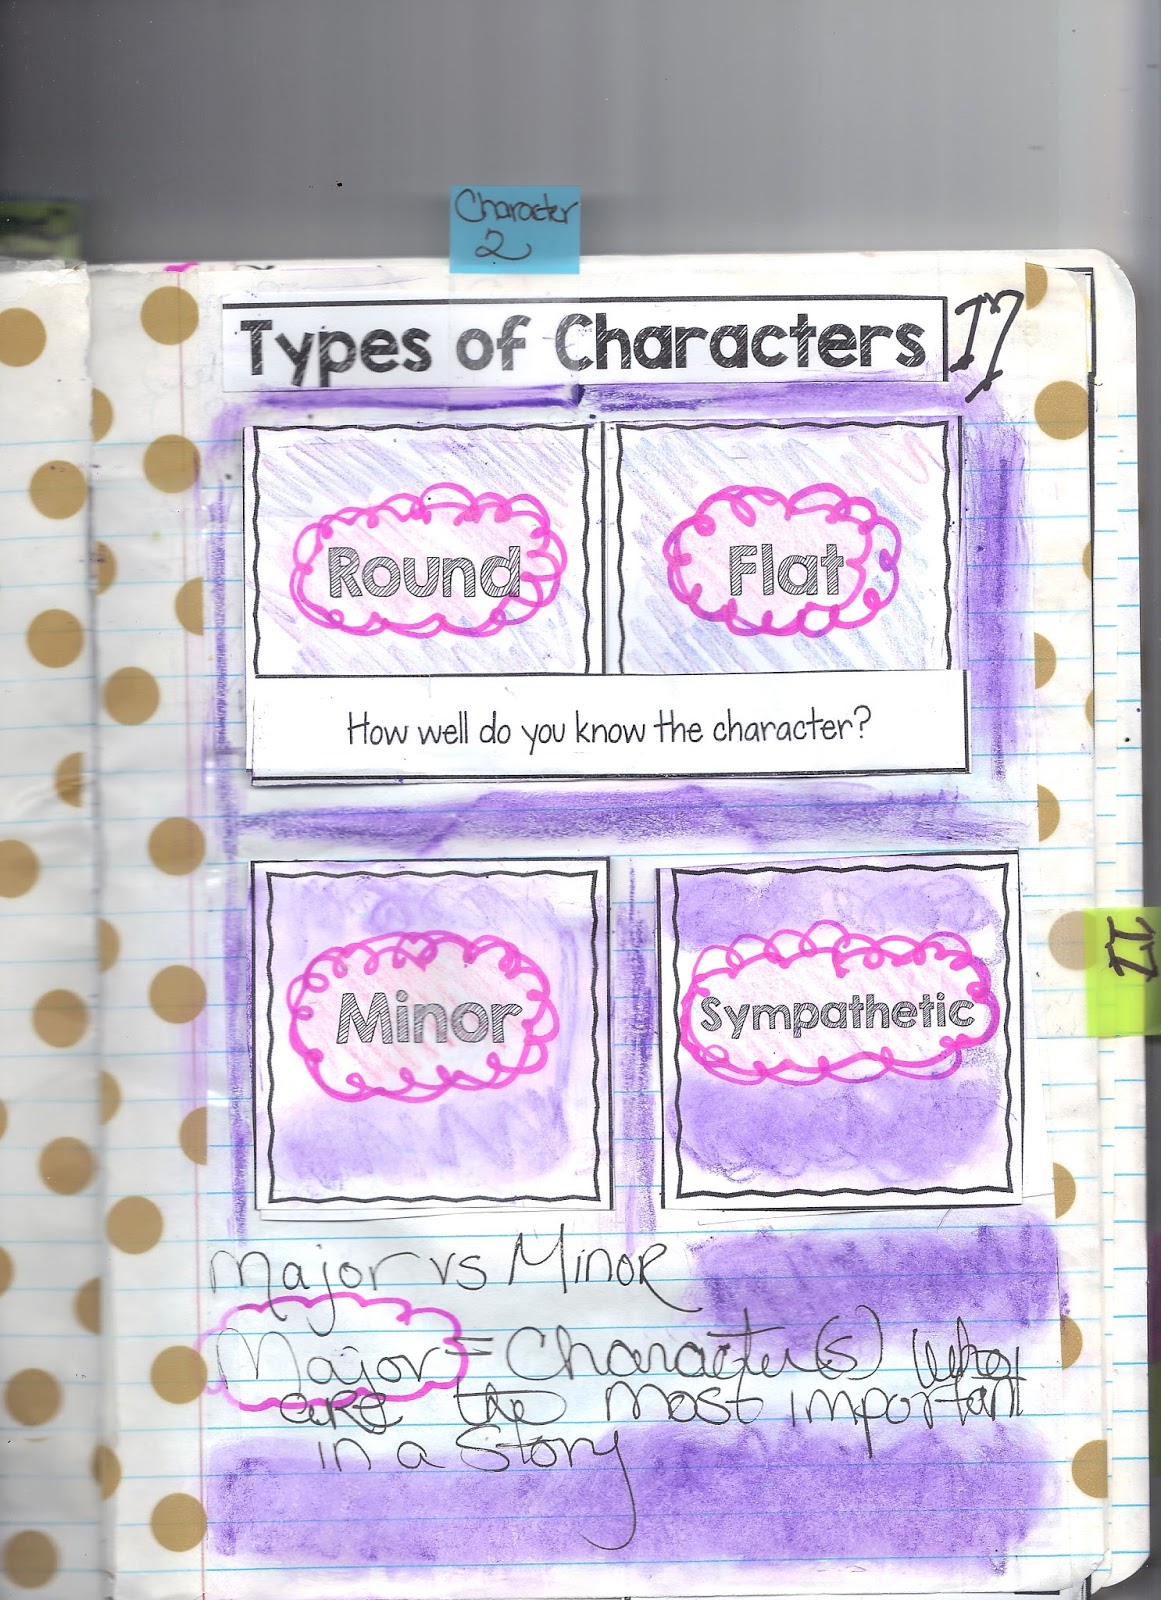 Character
2
Types of Characters
17
Round
Flat
How well do you know the character?
Minor
Sympathetic
17
Major vs Minor
Major = Character(s) who
are the most important
in a Story